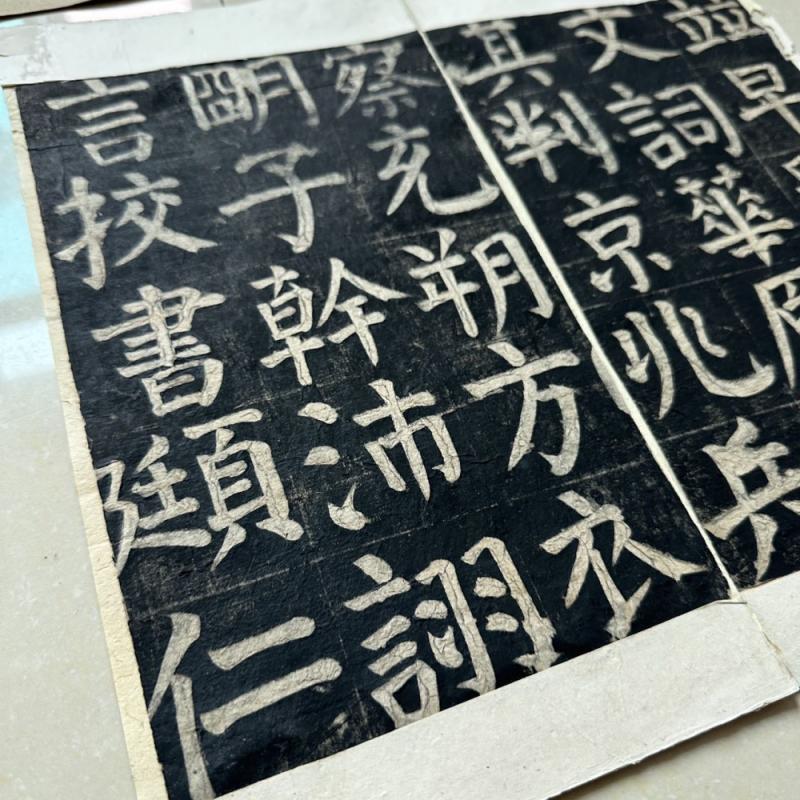 竝早
文詞華
其判京兆兵
察充朔方衣
朙子幹沛詡
言挍書頲仁